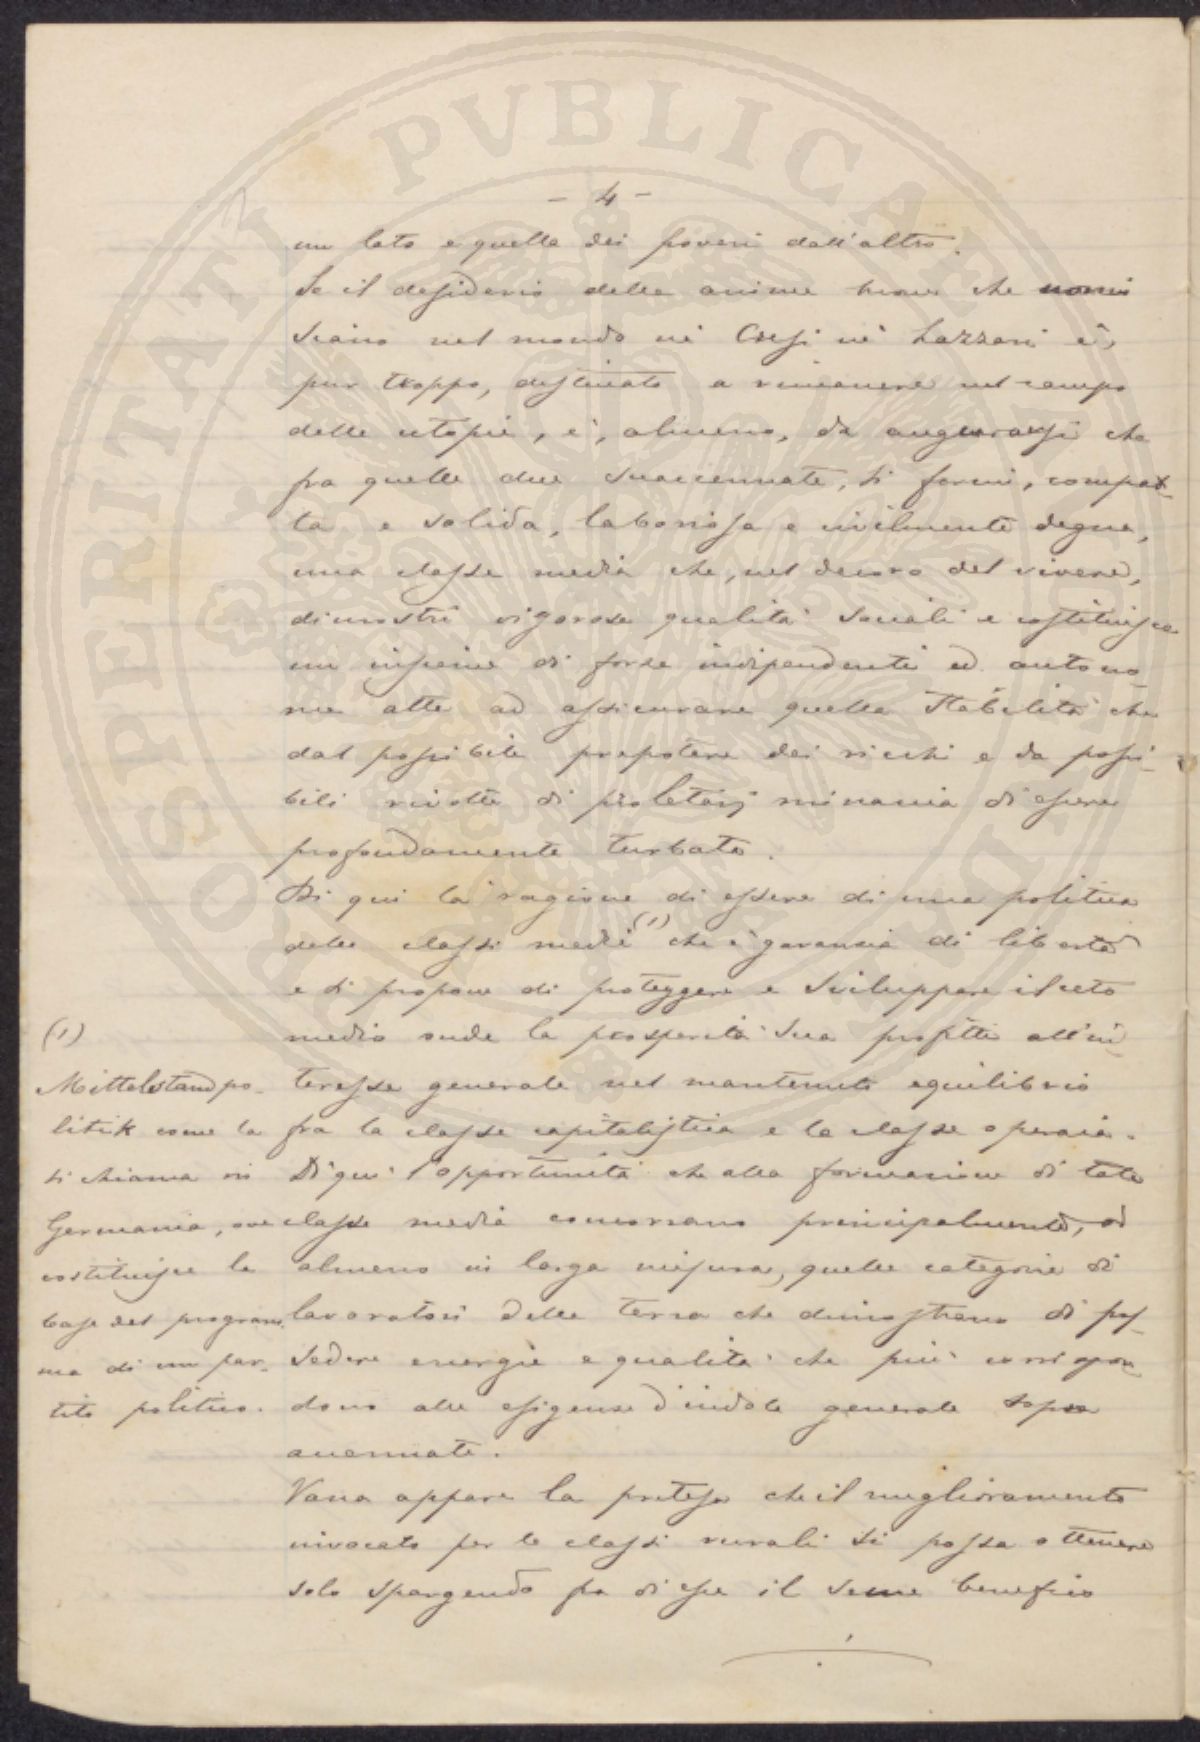 PROSPERITATI PVBLICAE
- 4 -
un lato e quella dei poveri dall'altro.
Se il desiderio delle anime buone che non vi
siano nel mondo nè Cresi nè Lazzari è,
pur troppo, destinato a rimanere nel campo
delle utopie, è, almeno, da augurarsi che
fra quelle due suaccennate, si formi, compat-
ta e solida, laboriosa e civilmente degna,
una classe media che, nel decoro del vivere,
dimostri vigorose qualità sociali e costituisca
un insieme di forze indipendenti ed autono-
me atte ad assicurare quella stabilità che
dal possibile prepotere dei ricchi e da possi-
bili rivolte di proletarj minaccia di essere
profondamente turbata.
Di qui la ragione di essere di una politica
delle classi medie (1) che è garanzia di libertà
e si propone di proteggere e sviluppare il ceto
medio onde la prosperità sua profitti all'in-
teresse generale nel mantenuto equilibrio
fra la classe capitalistica e la classe operaia.
Di qui l'opportunità che alla formazione di tale
classe media concorrano principalmente, od
almeno in larga misura, quelle categorie di
lavoratori della terra che dimostrano di pos-
sedere energie e qualità che più corrispon-
dono alle esigenze d'indole generale sopra
accennate.
Vana appare la pretesa che il miglioramento
invocato per le classi rurali si possa ottenere
solo spargendo fra di esse il seme benefico
(1)
Mittelstandpo-
litik come la
si chiama in
Germania, ove
costituisce la
base del program-
ma di un par-
tito politico.